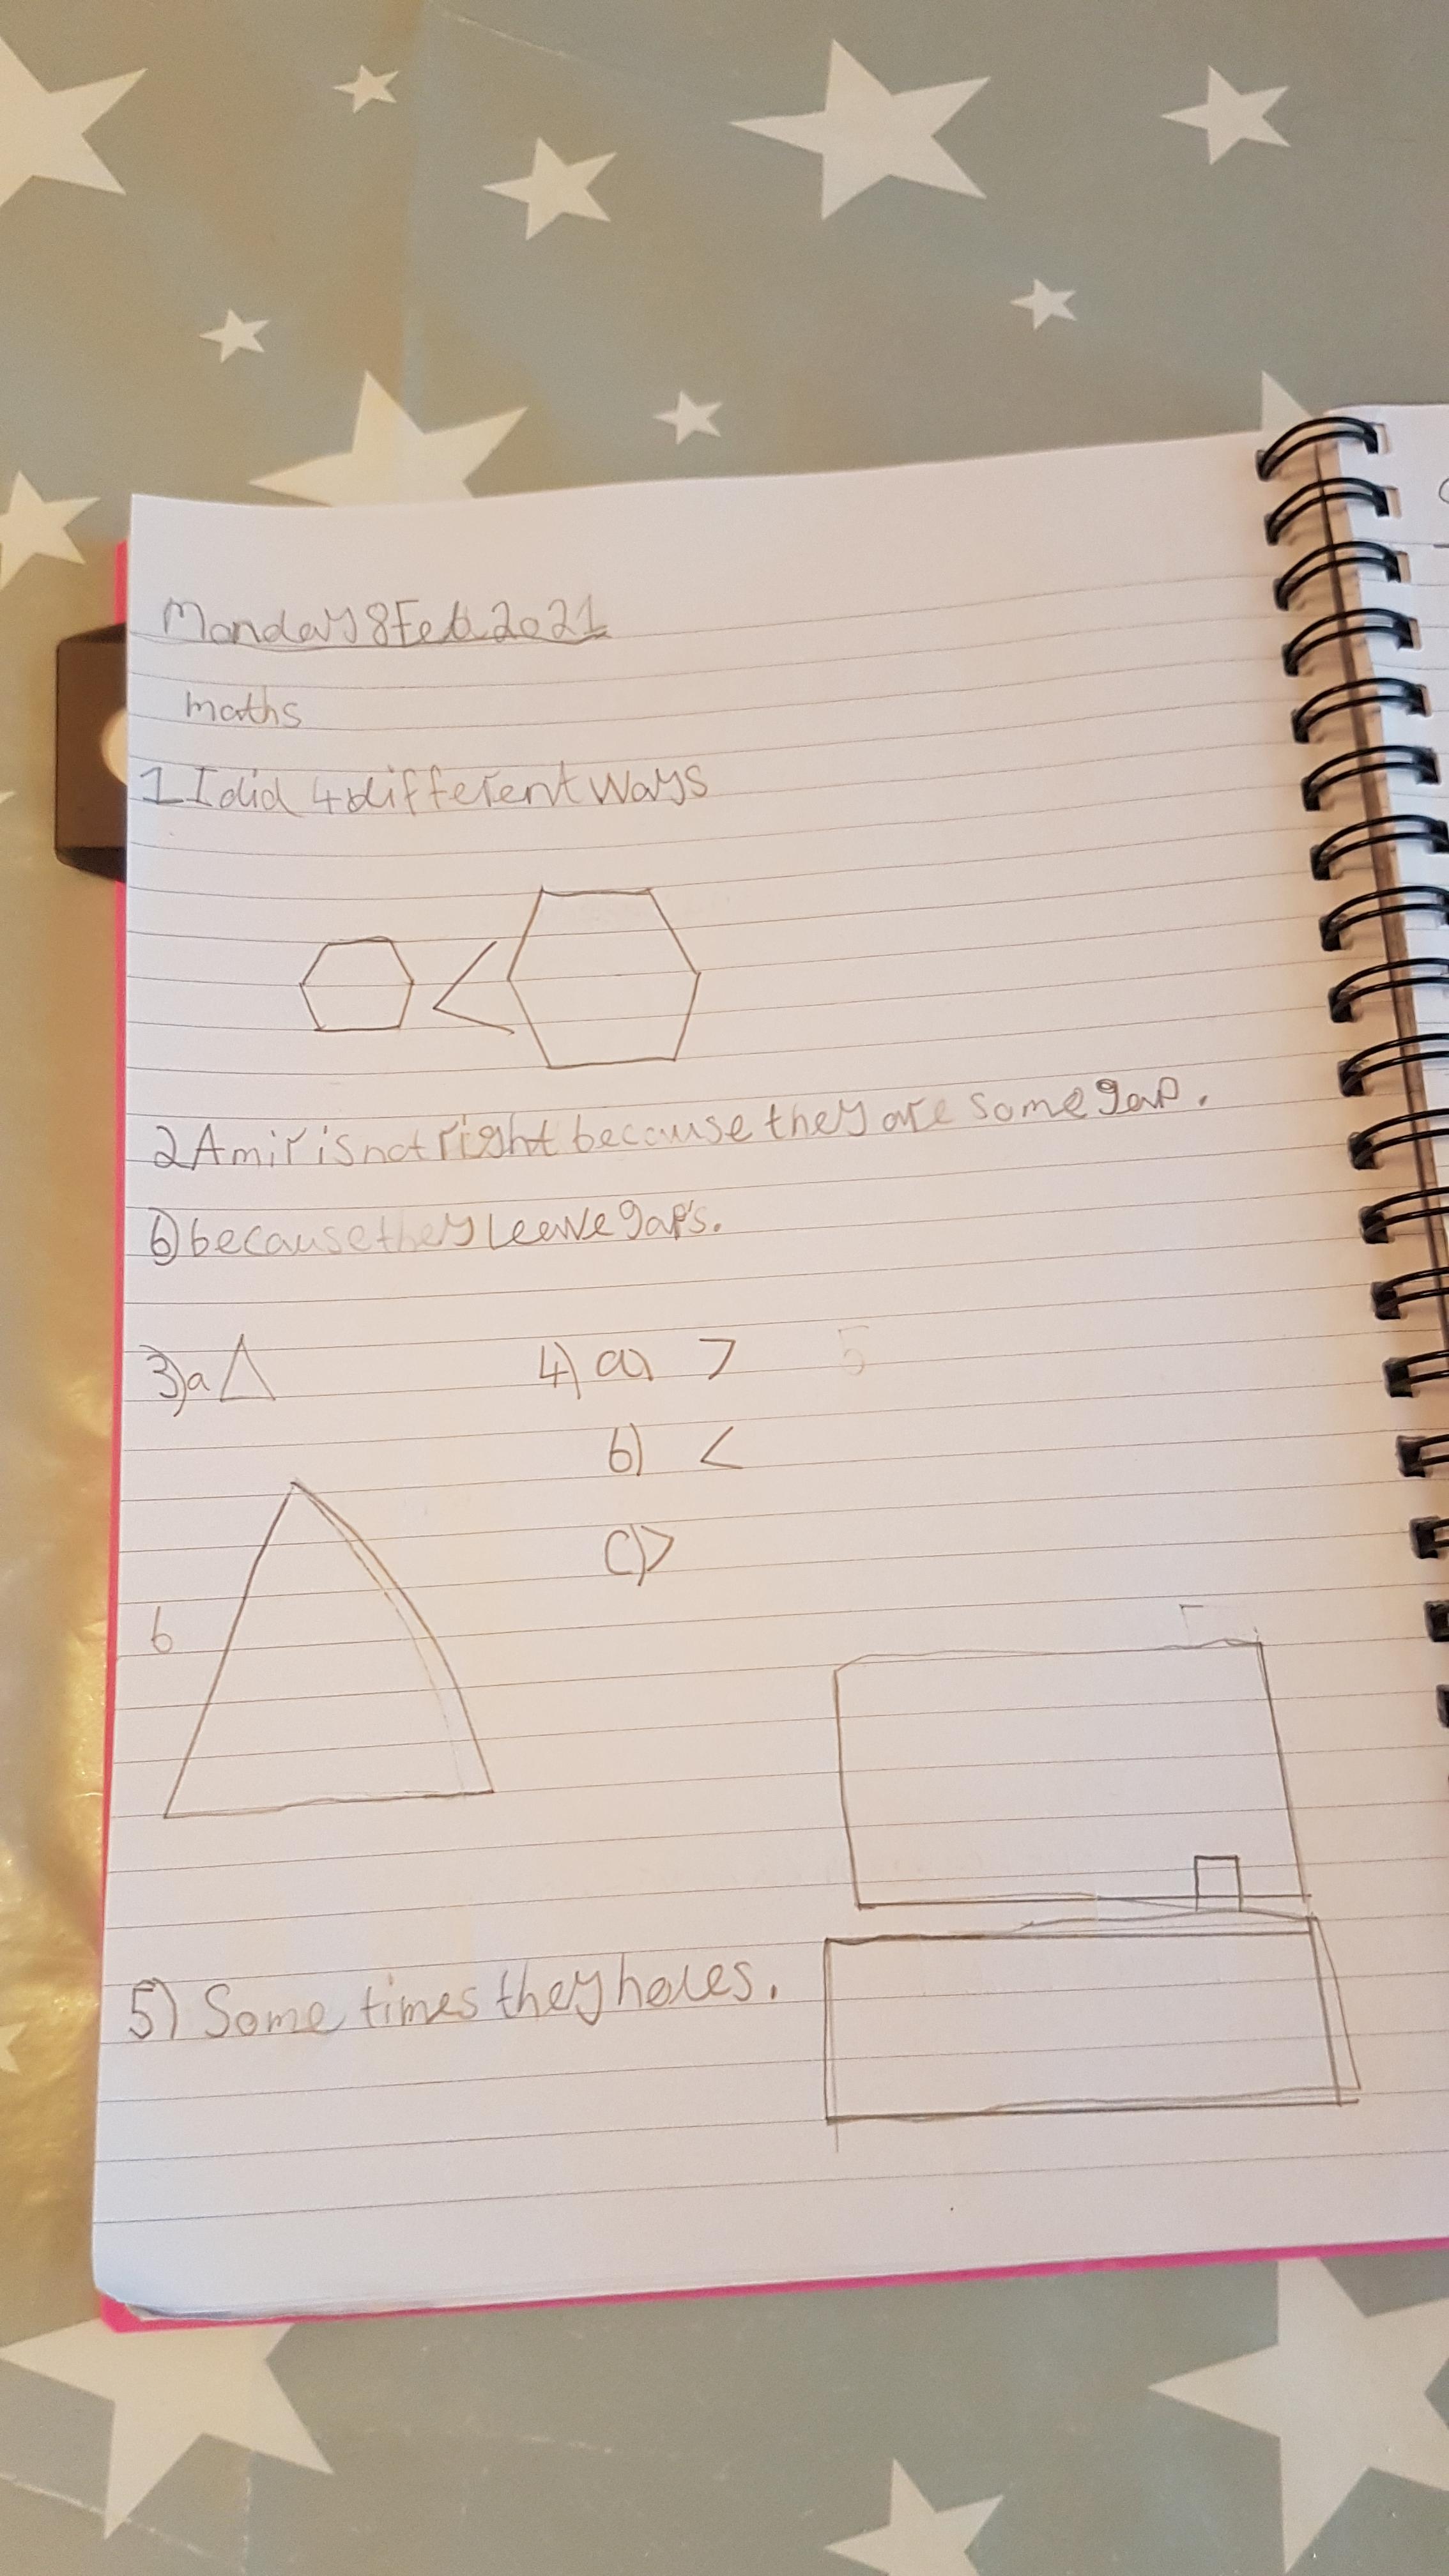 Monday 8 Feb 2021
maths
1 I did 4 different ways
<
2 Amir is not right because they are some gap.
b) because they leave gap's.
3) a 4) a) > 5
b) <
c) >
b
5) Some times they holes.